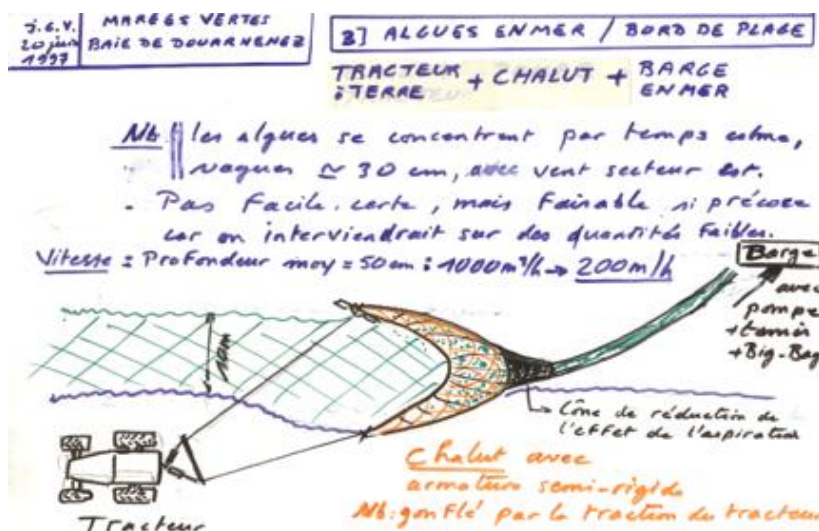 J.G.V.
20 juin
1997
MAREES VERTES
BAIE DE DOUARNENEZ
3] ALGUES EN MER / BORD DE PLAGE
TRACTEUR
à TERRE
+ CHALUT +
BARGE
EN MER
Nb les algues se concentrent par temps calme,
vagues ≃ 30 cm, avec vent secteur est.
- Pas Facile, certe, mais Faisable si précoce
car on interviendrait sur des quantités Faibles.
Vitesse = Profondeur moy = 50 cm : 1000 m³/h → 200 m/h
Barge
avec
pompe
+ tamis
+ Big-Bag
10m
Cône de réduction de
l'effet de l'aspiration
Chalut avec
armature semi-rigide
Nb: gonflé par la traction du tracteur
Tracteur